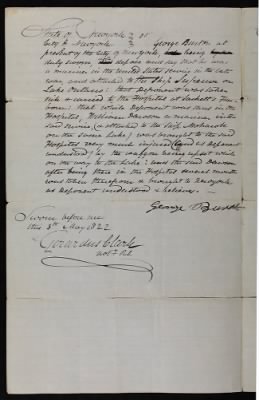 State of Newyork } ss
City of Newyork } George Burton at
present of the City of Newyork being
duly sworn deposes and say that he was
a marine in the United States service in the late
war, and attached to the Ship Superior on
Lake Ontario: that Deponent was taken
sick & carried to the Hospital at Sackett's Har
bour; that while Deponent was thus in the
Hospital, William Dawson a marine in the
said service (& attached to the Ship Mohawk
on the same Lake) was brought to the said
Hospital very much injured (and as Deponent
understood) by the waggon being upset while
on the way to the Lake: and the said Dawson
after being there in the Hospital several months
was taken therefrom & brought to Newyork
as Deponent understood & believes.—
George Burton
Sworn before me
this 8th May 1822
Gerardus Clark
Not. Pub.